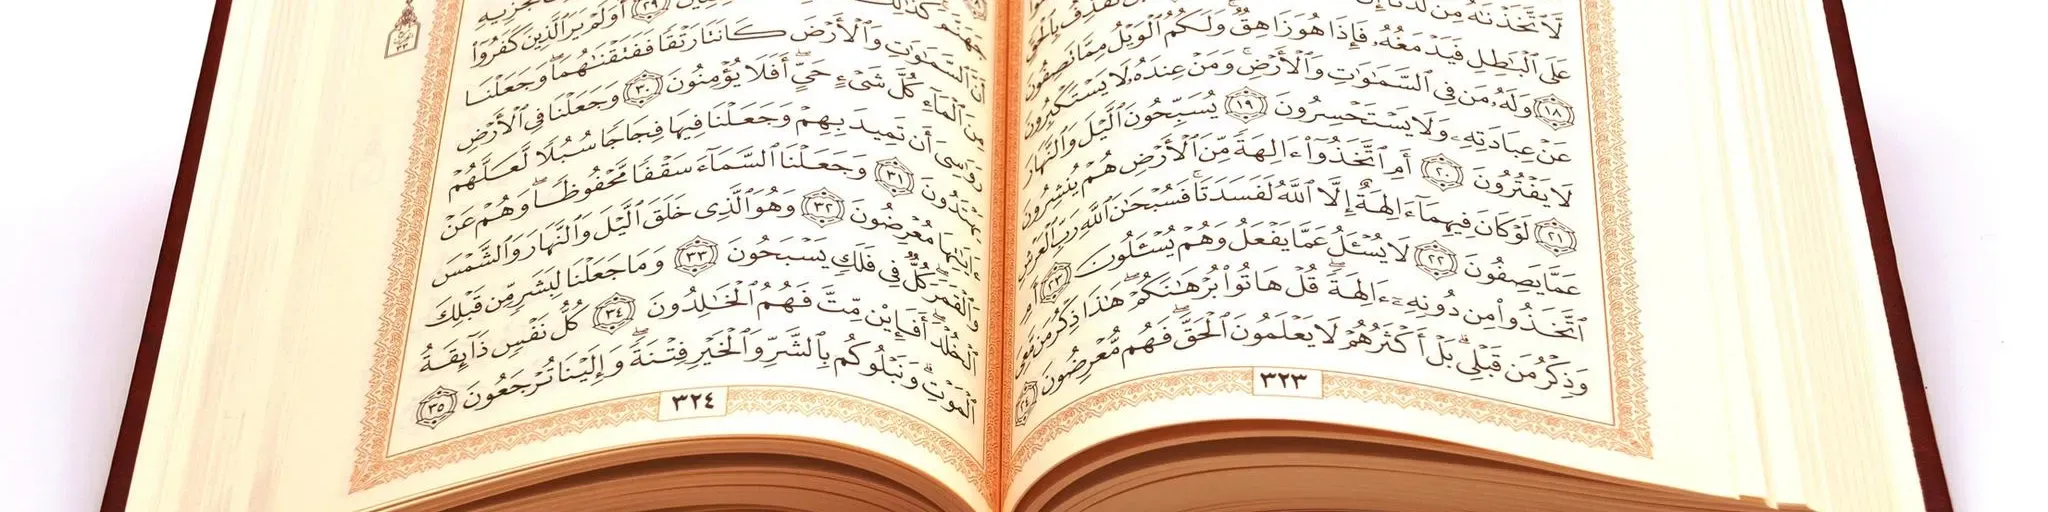 لَّاتَّخَذْنَٰهُ مِن لَّدُنَّآ إِن
نَقْذِفُ بِٱلْحَقِّ
عَلَى ٱلْبَٰطِلِ فَيَدْمَغُهُۥ فَإِذَا هُوَ زَاهِقٌ ۚ وَلَكُمُ ٱلْوَيْلُ مِمَّا تَصِفُونَ
١٨ وَلَهُۥ مَن فِى ٱلسَّمَٰوَٰتِ وَٱلْأَرْضِ ۚ وَمَنْ عِندَهُۥ لَا يَسْتَكْبِرُونَ
عَنْ عِبَادَتِهِۦ وَلَا يَسْتَحْسِرُونَ ١٩ يُسَبِّحُونَ ٱلَّيْلَ وَٱلنَّهَارَ
لَا يَفْتُرُونَ ٢٠ أَمِ ٱتَّخَذُوٓا۟ ءَالِهَةً مِّنَ ٱلْأَرْضِ هُمْ يُنشِرُونَ
٢١ لَوْ كَانَ فِيهِمَآ ءَالِهَةٌ إِلَّا ٱللَّهُ لَفَسَدَتَا ۚ فَسُبْحَٰنَ ٱللَّهِ رَبِّ ٱلْعَرْشِ
عَمَّا يَصِفُونَ ٢٢ لَا يُسْـَٔلُ عَمَّا يَفْعَلُ وَهُمْ يُسْـَٔلُونَ ٢٣ أَمِ
ٱتَّخَذُوا۟ مِن دُونِهِۦٓ ءَالِهَةً ۖ قُلْ هَاتُوا۟ بُرْهَٰنَكُمْ ۖ هَٰذَا ذِكْرُ مَن مَّعِىَ
وَذِكْرُ مَن قَبْلِى ۗ بَلْ أَكْثَرُهُمْ لَا يَعْلَمُونَ ٱلْحَقَّ ۖ فَهُم مُّعْرِضُونَ ٢٤
٣٢٣
نَجْزِيهِ
جَهَنَّمَ ۚ كَذَٰلِكَ ٢٩ أَوَلَمْ يَرَ ٱلَّذِينَ كَفَرُوٓا۟
أَنَّ ٱلسَّمَٰوَٰتِ وَٱلْأَرْضَ كَانَتَا رَتْقًا فَفَتَقْنَٰهُمَا ۖ وَجَعَلْنَا
مِنَ ٱلْمَآءِ كُلَّ شَىْءٍ حَىٍّ ۖ أَفَلَا يُؤْمِنُونَ ٣٠ وَجَعَلْنَا فِى ٱلْأَرْضِ
رَوَٰسِىَ أَن تَمِيدَ بِهِمْ وَجَعَلْنَا فِيهَا فِجَاجًا سُبُلًا لَّعَلَّهُمْ
يَهْتَدُونَ ٣١ وَجَعَلْنَا ٱلسَّمَآءَ سَقْفًا مَّحْفُوظًا ۖ وَهُمْ عَنْ
ءَايَٰتِهَا مُعْرِضُونَ ٣٢ وَهُوَ ٱلَّذِى خَلَقَ ٱلَّيْلَ وَٱلنَّهَارَ وَٱلشَّمْسَ
وَٱلْقَمَرَ ۖ كُلٌّ فِى فَلَكٍ يَسْبَحُونَ ٣٣ وَمَا جَعَلْنَا لِبَشَرٍ مِّن قَبْلِكَ
ٱلْخُلْدَ ۖ أَفَإِي۟ن مِّتَّ فَهُمُ ٱلْخَٰلِدُونَ ٣٤ كُلُّ نَفْسٍ ذَآئِقَةُ
ٱلْمَوْتِ ۗ وَنَبْلُوكُم بِٱلشَّرِّ وَٱلْخَيْرِ فِتْنَةً ۖ وَإِلَيْنَا تُرْجَعُونَ ٣٥
٣٢٤